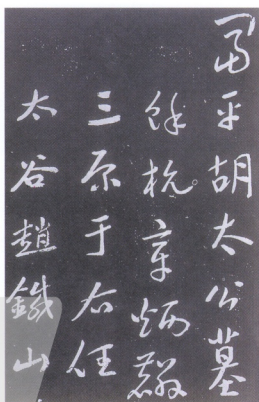 富平胡太公墓
餘杭章炳麟
三原于右任
太谷趙鐵山